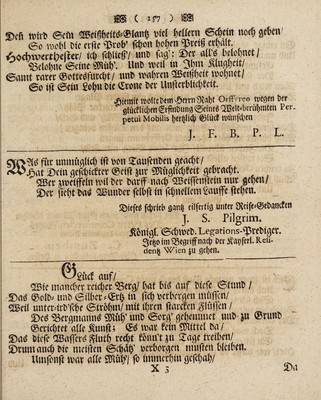 ( 157 )
Deñ wird Sein Weißheits-Glantz viel hellern Schein noch geben/
So wohl die erste Prob' schon hohen Preiß erhält.
Hochwerthester/ ich schließ/ und sag': Der all's belohnet/
Belohne Seine Müh'. Und weil in Ihm Klugheit/
Samt rarer Gottesfurcht/ und wahren Weißheit wohnet/
So ist Sein Lohn die Crone der Unsterblichkeit.
Hiemit wolte dem Herrn Raht Orffyreo wegen der
glücklichen Erfindung Seines Welt-berühmten Per-
petui Mobilis hertzlich Glück wünschen
J. F. B. P. L.
Was für unmüglich ist von Tausenden geacht/
Hat Dein geschickter Geist zur Müglichkeit gebracht.
Wer zweiffeln wil der darff nach Weissenstein nur gehen/
Der sieht das Wunder selbst in schnellem Lauffe stehen.
Dieses schrieb gantz eilfertig unter Reise-Gedancken
J. S. Pilgrim.
Königl. Schwed. Legations-Prediger.
Jetzo im Begriff nach der Kayserl. Resi-
dentz Wien zu gehen.
Glück auf/
Wie mancher reicher Berg/ hat bis auf diese Stund/
Das Gold- und Silber-Ertz in sich verbergen müssen/
Weil unter-ird'sche Ströhm/ mit ihren starcken Flüssen/
Des Bergmanns Müh' und Sorg' gehemmet und zu Grund
Gerichtet alle Kunst; Es war kein Mittel da/
Das diese Wassers Fluth recht könn't zu Tage treiben/
Drum auch die meisten Schätz' verborgen musten bleiben.
Umsonst war alle Müh/ so immerhin geschah/
X 3 Da